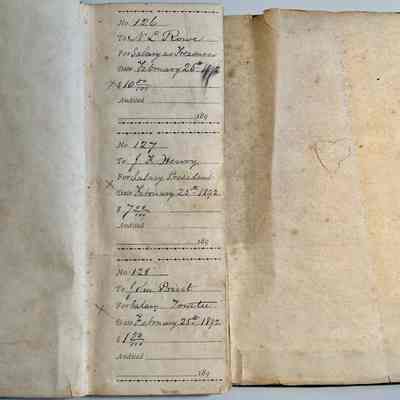 No. 126
To N. L. Rowe
For Salary as Treasurer
Date February 25th 1892
X $ 10 00/100
Audited
189
No. 127
To J. F. Henry
For Salary President
X
Date February 25th 1892
$ 7 00/100
Audited
189
No. 128
To John Priest
For Salary
X
Date February 25th 1892
$ 1 50/100
Audited
189